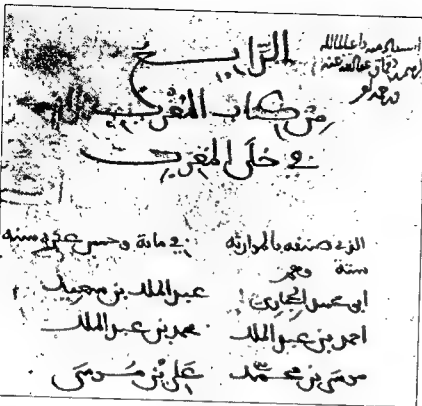 الرَّابـــع
مِن كتاب المُغْرِب
في حُلَى المَغرِب
الذي صنفه بالموارثة في مائة وخمس عشرة سنة
ستة وهم
الحجاري عبد الملك بن سعيد
احمد بن عبد الملك محمد بن عبد الملك
موسى بن محمد علي بن موسى